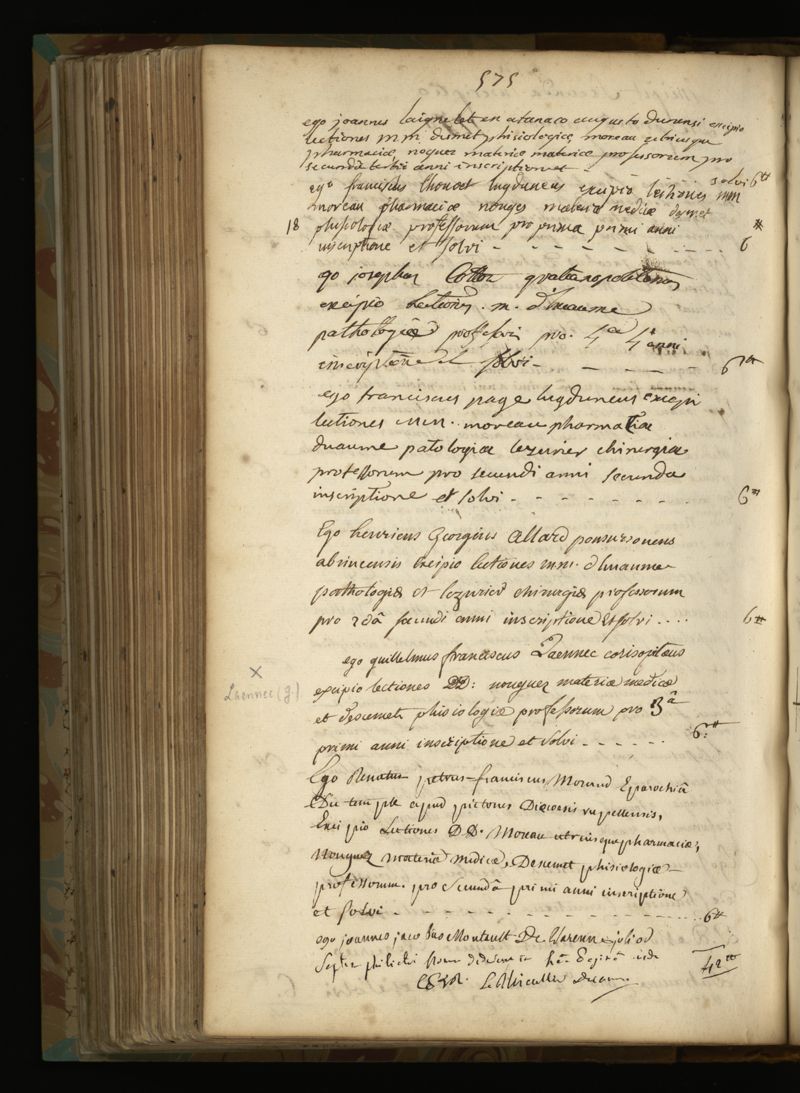 575
ego joannes laignelet en atanaco augusto dunensi excipio
lectiones m m desmet phisiologiæ moreau utriusque
pharmaciæ noguez materiæ professorum pro
secunda tertii anni inscriptione et solvi 6tt
ego franciscus thouret lugduneus excipio lectiones mm
moreau pharmaciæ nouges materiæ mediæ desmet
18 phisiologiæ professorum pro prima primi anni
inscriptione et solvi - - - - - - - - - 6tt
ego josephus
excipio lectiones . m . dhuaume
pathologiæ professoris pro. 4ta 4i anni
inscriptione et solvi - - - - - 6tt
ego franciscus page lugduneus excipi
lectiones mm. moreau pharmatiæ
duaume patologiæ lezurier chirurgiæ
professorum pro secundi anni secunda
inscriptione et solvi - - - - - - - 6tt
Ego henricus Georgius Allard
abrincensis excipio lectiones mm. dhuaume
pathologiæ et lezurier chirurgiæ professorum
pro 2dâ secundi anni inscriptione et solvi .... 6tt
ego guillelmus franciscus Laennec corisopitæus
x
Laennec (g.)
excipio lectiones DD: nouguez materiæ medicæ
et descemet phisiologiæ professorum pro 3â
primi anni inscriptione et solvi - - - - - - 6:tt
Ego Renatus petrus franciscus Morand Eparochiâ
Du temple apud pictones Dioecesis rupellensis,
Excipio Lectiones D.D. Moreau utriusque pharmaciæ,
Nouguez materiæ medicæ, Desemet phisiologiæ
professorum. pro secundâ primi anni inscriptione
et solvi - - - - - - - - - - - - - - - 6tt
ego joannes jaco bus Montault De
42tt